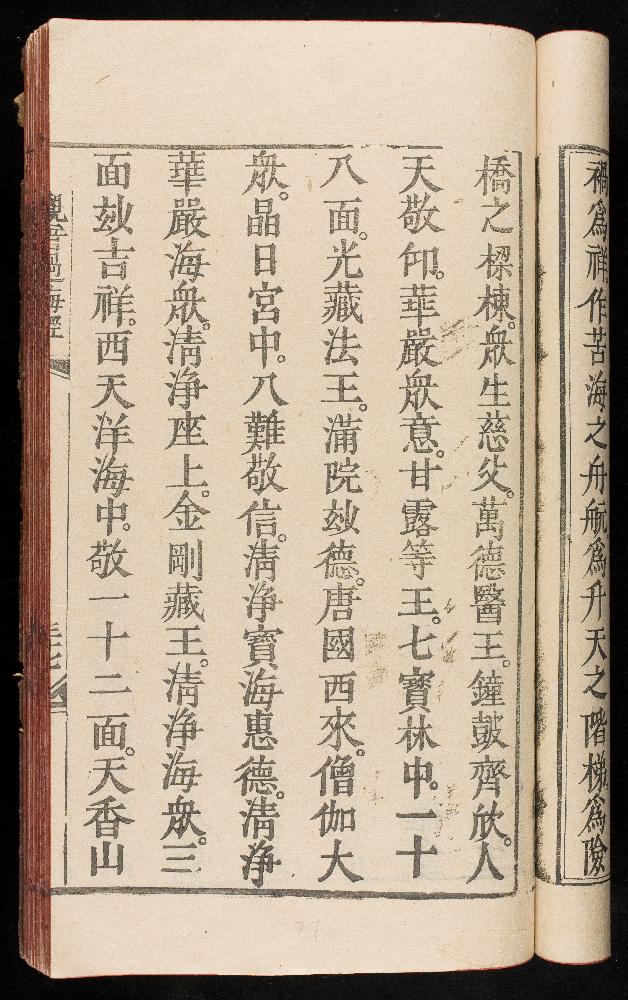 禍為祥作苦海之舟航為升天之階梯為險
橋之樑棟。眾生慈父。萬德醫王。鐘皷齊欣。人
天敬仰。華嚴眾意。甘露等王。七寳林中。一十
八面。光藏法王。滿院玅德。唐國西來。僧伽大
眾。晶日宮中。八難敬信。清淨寳海惠德。清淨
華嚴海眾。清淨座上。金剛藏王。清淨海眾。三
面玅吉祥。西天洋海中。敬一十二面。天香山